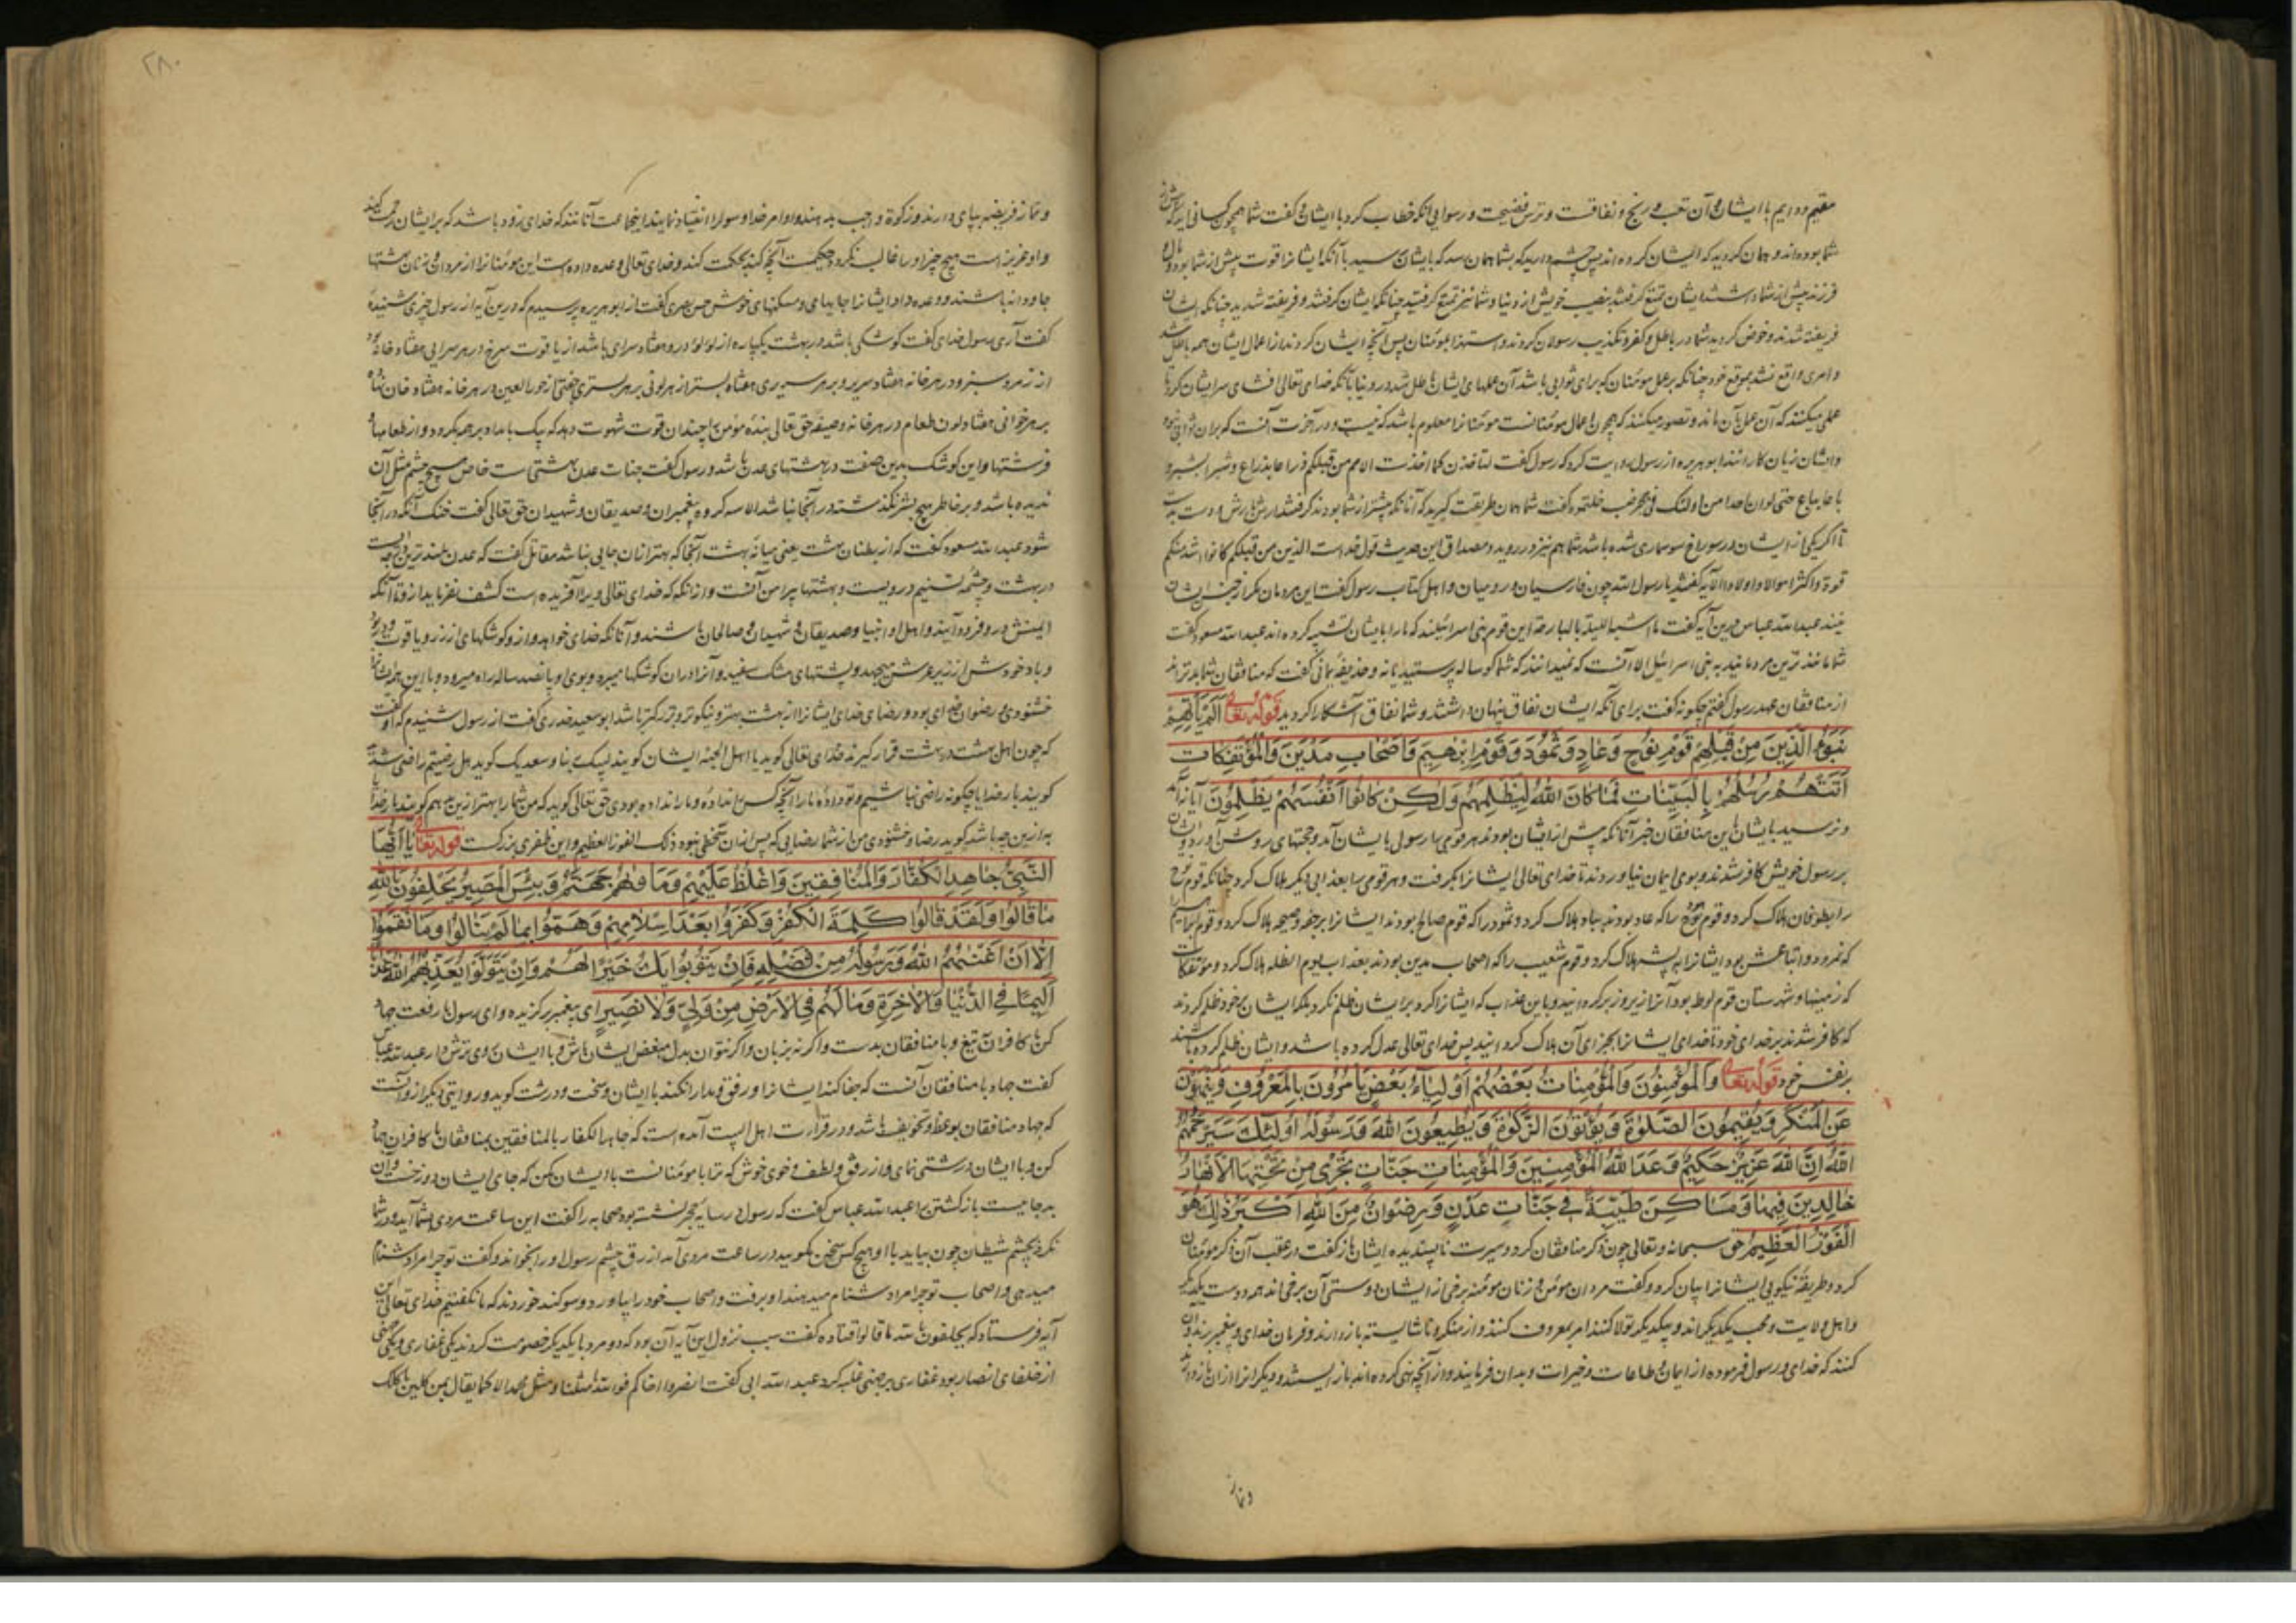 مقیم و دایم با ایشان و آن تعب و رنج و نفاقت و ترس فضیحت و رسوایی آنکه خطاب کرد با ایشان و گفت شما همچون کسانی اید که پیش از
شما بوده‌اند و همان کردید که ایشان کرده‌اند پس چشم دارید که بشما همان رسد که بایشان رسید با آنکه ایشانرا قوت بیش از شما بود و مال و
فرزند بیش از شما داشتند ایشان تمتع گرفتند بنصیب خویش از دنیا و شما نیز تمتع گرفتید چنانکه ایشان گرفتند و فریفته شدید چنانکه ایشان
فریفته شدند و خوض کردید شما در باطل و کفر و تکذیب رسولان کردند و استهزا بمؤمنان پس آنچه ایشان کردند از اعمال ایشان همه باطل شد
وایشان زیان کارانند ابو هریره از رسول روایت کرد که رسول گفت لتاخذن کما اخذت الامم من قبلکم ذراعا بذراع و شبرا بشبر و
باعا بباع حتی لو ان احدا من اولئک دخل جحر ضب لدخلتموه گفت شما همان طریقت گیرید که آنانکه پیشتر از شما بودند گرفتند
تا اگر یکی از ایشان در سوراخ سوسماری شده باشد شما هم نیز در روید و مصداق این حدیث قول خداست الذین من قبلکم کانوا اشد منکم
قوة و اکثر اموالا و اولادا الآیه گفتند یا رسول الله چون فارسیان و رومیان و اهل کتاب رسول گفت این مردمان مگر از جز ایشان
نیند عبد الله عباس درین آیه گفت ما اشبه اللیلة بالبارحة این قوم بنی اسرائیلند که ما را بایشان تشبیه کرده‌اند عبد الله مسعود گفت
شما مانندترین مردمانید به بنی اسرائیل الا آنست که نمیدانند که شما گوساله پرستیدید یا نه و حذیفۀ یمانی گفت که منافقان شما بدترند
از منافقان عهد رسول گفتم چگونه گفت برای آنکه ایشان نفاق پنهان داشتند و شما نفاق آشکارا کردید قوله تعالی اَلَمْ یَأْتِهِمْ
نَبَؤُا الَّذِینَ مِنْ قَبْلِهِمْ قَوْمِ نُوحٍ وَعَادٍ وَثَمُودَ وَقَوْمِ اِبْرٰهِیمَ وَاَصْحَابِ مَدْیَنَ وَالْمُؤْتَفِکَاتِ
اَتَتْهُمْ رُسُلُهُمْ بِالْبَیِّنَاتِ فَمَا کَانَ اللّٰهُ لِیَظْلِمَهُمْ وَلٰکِنْ کَانُوا اَنْفُسَهُمْ یَظْلِمُونَ آیا نه آمد
و نرسید بایشان باین منافقان خبر آنانکه پیش از ایشان بودند هر قومی را رسولی بایشان آمد و حجتهای روشن آورد و ایشان
بر رسول خویش کافر شدند و بوی ایمان نیاوردند تا خدای تعالی ایشانرا بگرفت و هر قومی را بعذابی دیگر هلاک کرد چنانکه قوم نوح
را بطوفان هلاک کرد و قوم هود را که عاد بودند بباد هلاک کرد و ثمود را که قوم صالح بودند ایشانرا برجفه و صیحه هلاک کرد و قوم ابراهیم
که نمرود و اتباعش بود ایشانرا به پشه هلاک کرد و قوم شعیب را که اصحاب مدین بودند بعذاب یوم الظله هلاک کرد و مؤتفکات
که زمینها و شهرستان قوم لوط بود آنرا زیر و زبر گردانید و باین عذاب که ایشانرا کرد بر ایشان ظلم نکرد بلکه ایشان بر خود ظلم کردند
که کافر شدند بر خدای خود تا خدای ایشانرا بجزای آن هلاک گردانید پس خدای تعالی عدل کرده باشد و ایشان ظلم کرده باشند
بر نفس خود قوله تعالی وَالْمُؤْمِنُونَ وَالْمُؤْمِنَاتُ بَعْضُهُمْ اَوْلِیَاءُ بَعْضٍ یَأْمُرُونَ بِالْمَعْرُوفِ وَیَنْهَوْنَ
عَنِ الْمُنْکَرِ وَیُقِیمُونَ الصَّلٰوةَ وَیُؤْتُونَ الزَّکٰوةَ وَیُطِیعُونَ اللّٰهَ وَرَسُولَهُ اُولٰئِکَ سَیَرْحَمُهُمُ
اللّٰهُ اِنَّ اللّٰهَ عَزِیزٌ حَکِیمٌ وَعَدَ اللّٰهُ الْمُؤْمِنِینَ وَالْمُؤْمِنَاتِ جَنَّاتٍ تَجْرِی مِنْ تَحْتِهَا الْاَنْهَارُ
خَالِدِینَ فِیهَا وَمَسَاکِنَ طَیِّبَةً فِی جَنَّاتِ عَدْنٍ وَرِضْوَانٌ مِنَ اللّٰهِ اَکْبَرُ ذٰلِکَ هُوَ
الْفَوْزُ الْعَظِیمُ حق سبحانه و تعالی چون ذکر منافقان کرد و سیرت ناپسندیده ایشان باز گفت در عقب آن ذکر مؤمنان
کرد و طریقۀ نیکویی ایشانرا بیان کرد و گفت مردان مؤمن و زنان مؤمنه برخی از ایشان دوستی آن برخی‌اند همه دوست یکدیگر
و اهل ولایت و محب یکدیگراند و بیکدیگر تولا کنند امر بمعروف کنند و از منکر و ناشایسته باز دارند و فرمان خدای و پیغمبر برند و آن
کنند که خدای و رسول فرموده از ایمان و طاعات و خیرات و بدان فرمایند و از آنچه نهی کرده‌اند باز ایستند و دیگرانرا از آن باز دارند
و نماز
۲۸۰
و نماز فریضه بپای دارند و زکوة واجب بدهند و اوامر خدا و رسول را انقیاد نمایند اینجماعت آنانند که خدای زود باشد که بر ایشان رحمت کند
و او عزیز است هیچ چیز او را غالب نگردد حکیمست آنچه کند بحکمت کند و خدای تعالی وعده داده است این مؤمنانرا از مردان و زنان بهشتها
جاودانه باشند و وعده داد ایشانرا جایهای و مسکنهای خوش حسن بصری گفت از ابو هریره پرسیدم که درین آیه از رسول چیزی شنیدۀ
گفت آری رسول خدای گفت کوشکی باشد در بهشت یکپاره از لؤلؤ درو هفتاد سرای باشد از یاقوت سرخ در هر سرایی هفتاد خانه بود
از زمرد سبز و در هر خانه هفتاد سریر و بر هر سریری هفتاد بستر از هر لونی بر هر بستری جفتی از حور العین در هر خانه هفتاد خوان نهاده
بر هر خوانی هفتاد لون طعام در هر خانه وصیفه حق تعالی بندۀ مؤمن را چندان قوت شهوت دهد که بیک بامداد بر همه بگردد و از طعامها
و این کوشک بدین صفت در بهشتهای عدن باشد و رسول گفت جنات عدن بهشتی است خاص هیچ چشم مثل آن
ندیده باشد و بر خاطر هیچ بشر نگذشته در آنجا نباشد الا سه گروه پیغمبران و صدیقان و شهیدان حق تعالی گفت خنک آنکه در آنجا
شود عبد الله مسعود گفت که از بطنان بهشت یعنی میانۀ بهشت آنجا که بهتر از آن جایی نباشد مقاتل گفت که عدن بلندترین درجه است
در بهشت و چشمۀ تسنیم درویست و بهشتها پیرامن آنست و از آنکه که خدای تعالی ویرا آفریده است کشف نفرماید از و تا آنکه
اهلش درو فرود آیند و اهل او انبیا و صدیقان و شهیدان و صالحان باشند و آنانکه خدای خواهد و از و کوشکهای از زر و یاقوت و در بود
و باد خوش از زیر عرش میجهد و پشتهای مشک سفید و آنرا در آن کوشکها میبرد و بوی او پانصد ساله راه میرود و با این همه ایشانرا
خشنودی و رضوان خدای بود و رضای خدای ایشانرا از بهشت بهتر و نیکوتر و بزرگتر باشد ابو سعید خدری گفت از رسول شنیدم که او گفت
که چون اهل بهشت در بهشت قرار گیرند خدای تعالی گوید یا اهل الجنة ایشان گویند لبیک ربنا و سعدیک گوید هل رضیتم راضی شدید
گویند بار خدایا چگونه راضی نباشیم و تو دادۀ ما را آنچه کس را نداده و ما را نداده بودی حق تعالی گوید که من شما را بهتر ازین بدهم گویند بار خدایا
به ازین چه باشد گوید رضا و خشنودی من از شما رضایی که پس از آن سخطی نبود ذلک الفوز العظیم و این ظفری بزرگست قوله تعالی یَا اَیُّهَا
النَّبِیُّ جَاهِدِ الْکُفَّارَ وَالْمُنَافِقِینَ وَاغْلُظْ عَلَیْهِمْ وَمَأْوٰیهُمْ جَهَنَّمُ وَبِئْسَ الْمَصِیرُ یَحْلِفُونَ بِاللّٰهِ
مَا قَالُوا وَلَقَدْ قَالُوا کَلِمَةَ الْکُفْرِ وَکَفَرُوا بَعْدَ اِسْلَامِهِمْ وَهَمُّوا بِمَا لَمْ یَنَالُوا وَمَا نَقَمُوا
اِلَّا اَنْ اَغْنٰیهُمُ اللّٰهُ وَرَسُولُهُ مِنْ فَضْلِهِ فَاِنْ یَتُوبُوا یَکُ خَیْرًا لَهُمْ وَاِنْ یَتَوَلَّوْا یُعَذِّبْهُمُ اللّٰهُ عَذَابًا
اَلِیمًا فِی الدُّنْیَا وَالْاٰخِرَةِ وَمَا لَهُمْ فِی الْاَرْضِ مِنْ وَلِیٍّ وَلَا نَصِیرٍ ای پیغمبر برگزیده و ای رسول با رفعت جهاد
کن با کافران بتیغ و با منافقان بدست و اگر نه بزبان و اگر نتوان بدل مبغض ایشان باش و با ایشان روی ترش دار عبد الله عباس
گفت جهاد با منافقان آنست که جفا کند ایشانرا و رفق و مدارا نکند با ایشان و سخت و درشت گوید و روایتی دیگر ازو آنست
که جهاد منافقان بوعظ و تخویف باشد و در قراءت اهل البیت آمده است که جاهد الکفار بالمنافقین بمنافقان با کافران جهاد
کن و با ایشان درشتی نمای و از رفق و لطف و خوی خوش که ترا با مؤمنانست با ایشان مکن که جای ایشان دوزخست و آن
بد جاییست بازگشتن را عبد الله عباس گفت که رسول در سایۀ حجره نشسته بود صحابه را گفت این ساعت مردی بشما آید و در شما
نگرد بچشم شیطان چون بیاید با او هیچ کس سخن مگویید در ساعت مردی آمد ازرق چشم رسول او را بخواند و گفت تو چرا مرا دشنام
میدهی و اصحاب تو چرا مرا دشنام میدهند او برفت و اصحاب خود را بیاورد و سوگند خوردند که ما نگفتیم خدای تعالی این
آیه فرستاد که یحلفون بالله ما قالوا قتاده گفت سبب نزول این آیه آن بود که دو مرد با یکدیگر خصومت کردند یکی غفاری و یکی جهنی
از حلفای انصار بود غفاری بر جهنی غلبه کرد عبد الله ابی گفت انصروا اخاکم فو الله ما مثلنا و مثل محمد الا کما یقال سمن کلبک یاکلک